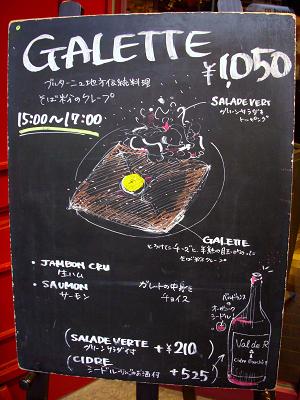 GALETTE
¥1,050
ブルターニュ地方伝統料理
そば粉のクレープ
15:00〜17:00
SALADE VERT
グリーンサラダを
トッピング
GALETTE
とろけたチーズと、半熟の目玉がのった
そば粉クレープ
・JAMBON CRU
生ハム
・SAUMON
サーモン
ガレットの中身を
チョイス
(SALADE VERTE
グリーンサラダ付
+¥210)
(CIDRE
シードル
お酒付
+525)
オーガニック
シードル!
Val de R
Cidre Bouché